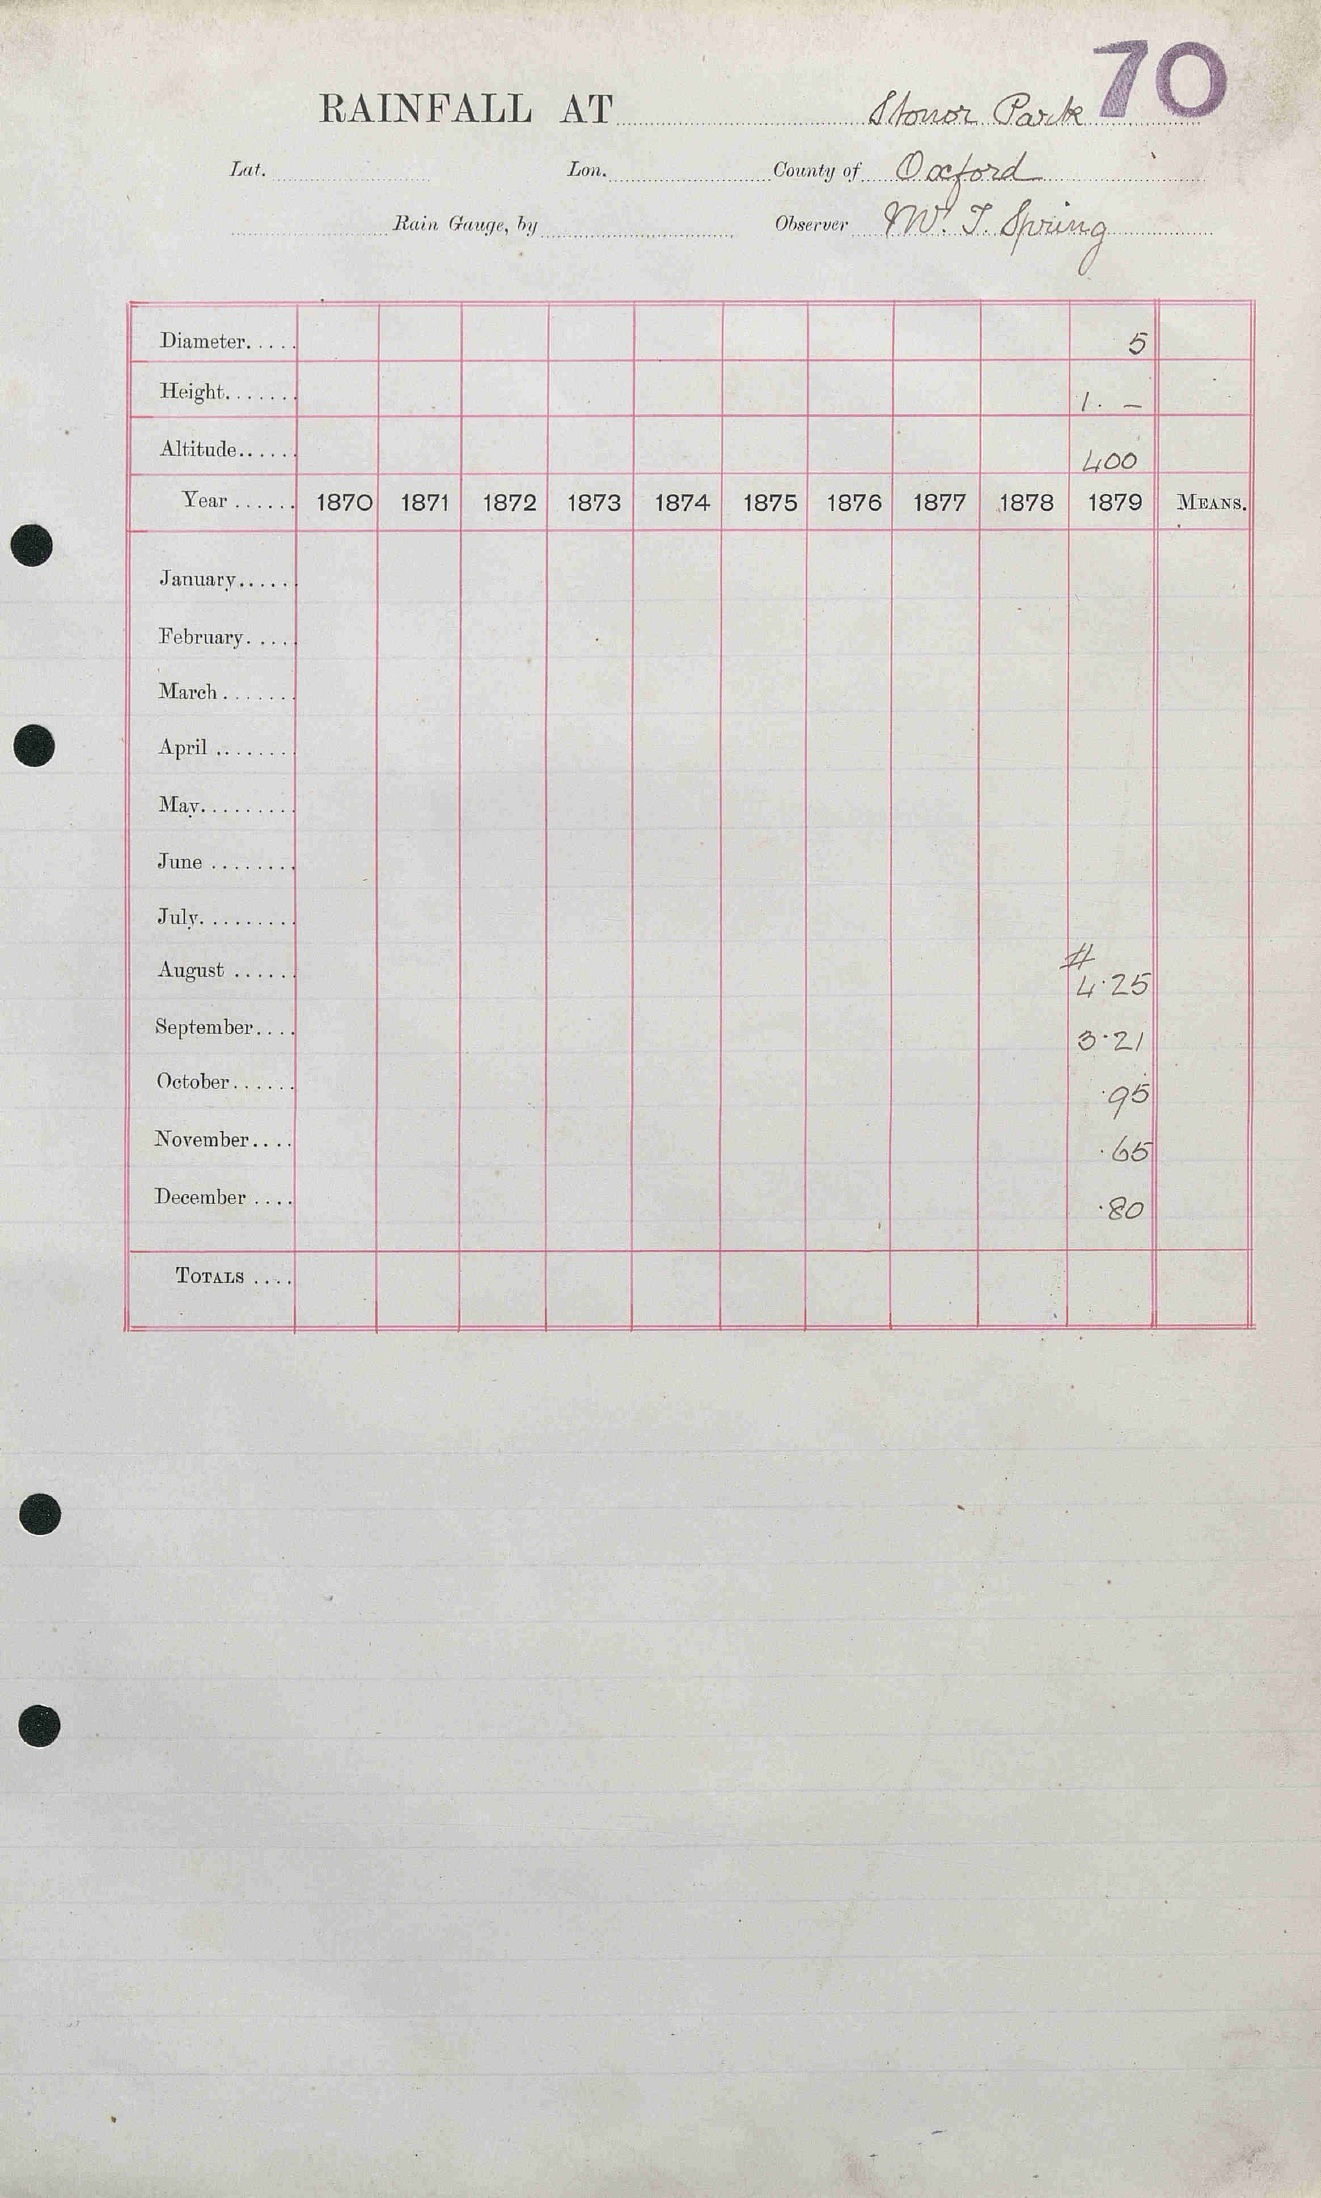 70
RAINFALL AT Stonor Park
Lat. Lon. County of Oxford
Rain Gauge, by Observer W. T. Spring
Diameter..... 5
Height....... 1. —
Altitude...... 400
Year ...... 1870 1871 1872 1873 1874 1875 1876 1877 1878 1879 MEANS.
January.....
February.....
March.......
April .......
May.........
June ........
July.........
#
August ...... 4·25
September.... 3·21
October...... ·95
November.... ·65
December .... ·80
TOTALS ....